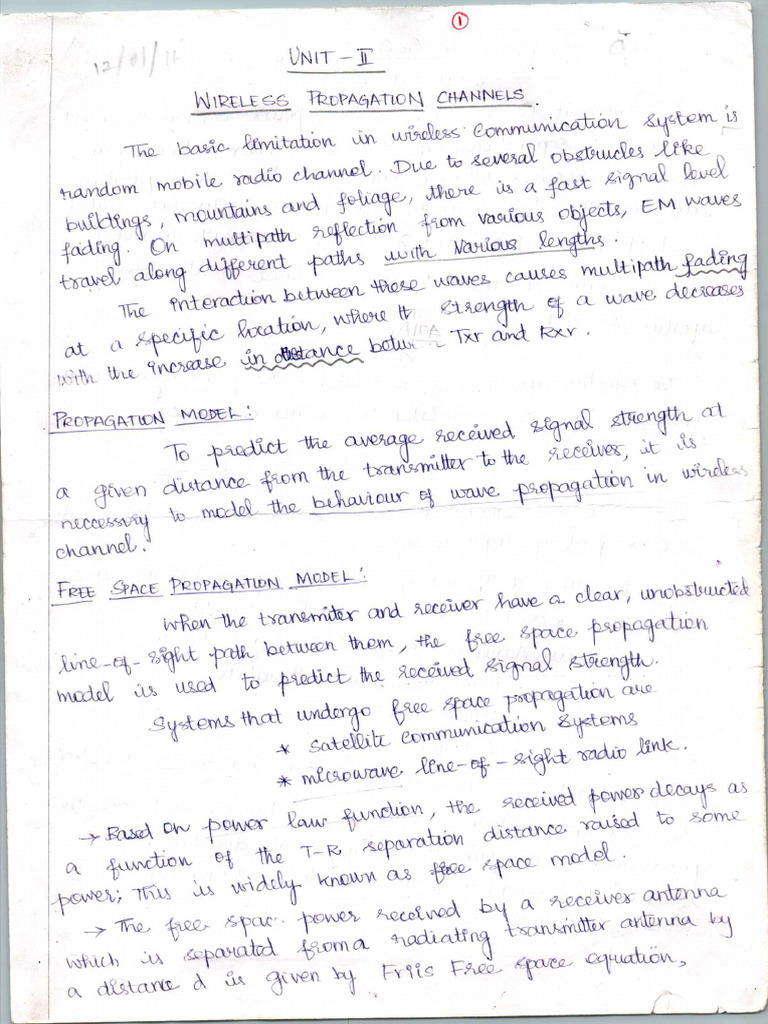 1
12/01/11
UNIT - II
WIRELESS PROPAGATION CHANNELS.
The basic limitation in wireless communication system is
random mobile radio channel. Due to several obstrucles like
buildings, mountains and foliage, there is a fast signal level
fading. On multipath reflection from various objects, EM waves
travel along different paths with various lengths.
The interaction between these waves causes multipath fading
at a specific location, where strength of a wave decreases
with the increase in distance Txr and Rxr.
PROPAGATION MODEL:
To predict the average received signal strength at
a given distance from the transmitter to the receiver, it is
neccessory to model the behaviour of wave propagation in wireless
channel.
FREE SPACE PROPAGATION MODEL:
When the transmiter and receiver have a clear, unobstructed
line-of-sight path between them, the free space propagation
model is used to predict the received signal strength.
Systems that undergo free space propagation are
* Satellite communication Systems
* microwave line-of-sight radio link.
→ Based on power law function, the received power decays as
a function of the T-R separation distance raised to some
power; This is widely known as free space model.
→ The free spac power received by a receiver antenna
which is separated from a radiating transmitter antenna by
a distance d is given by Friis Free space equation,